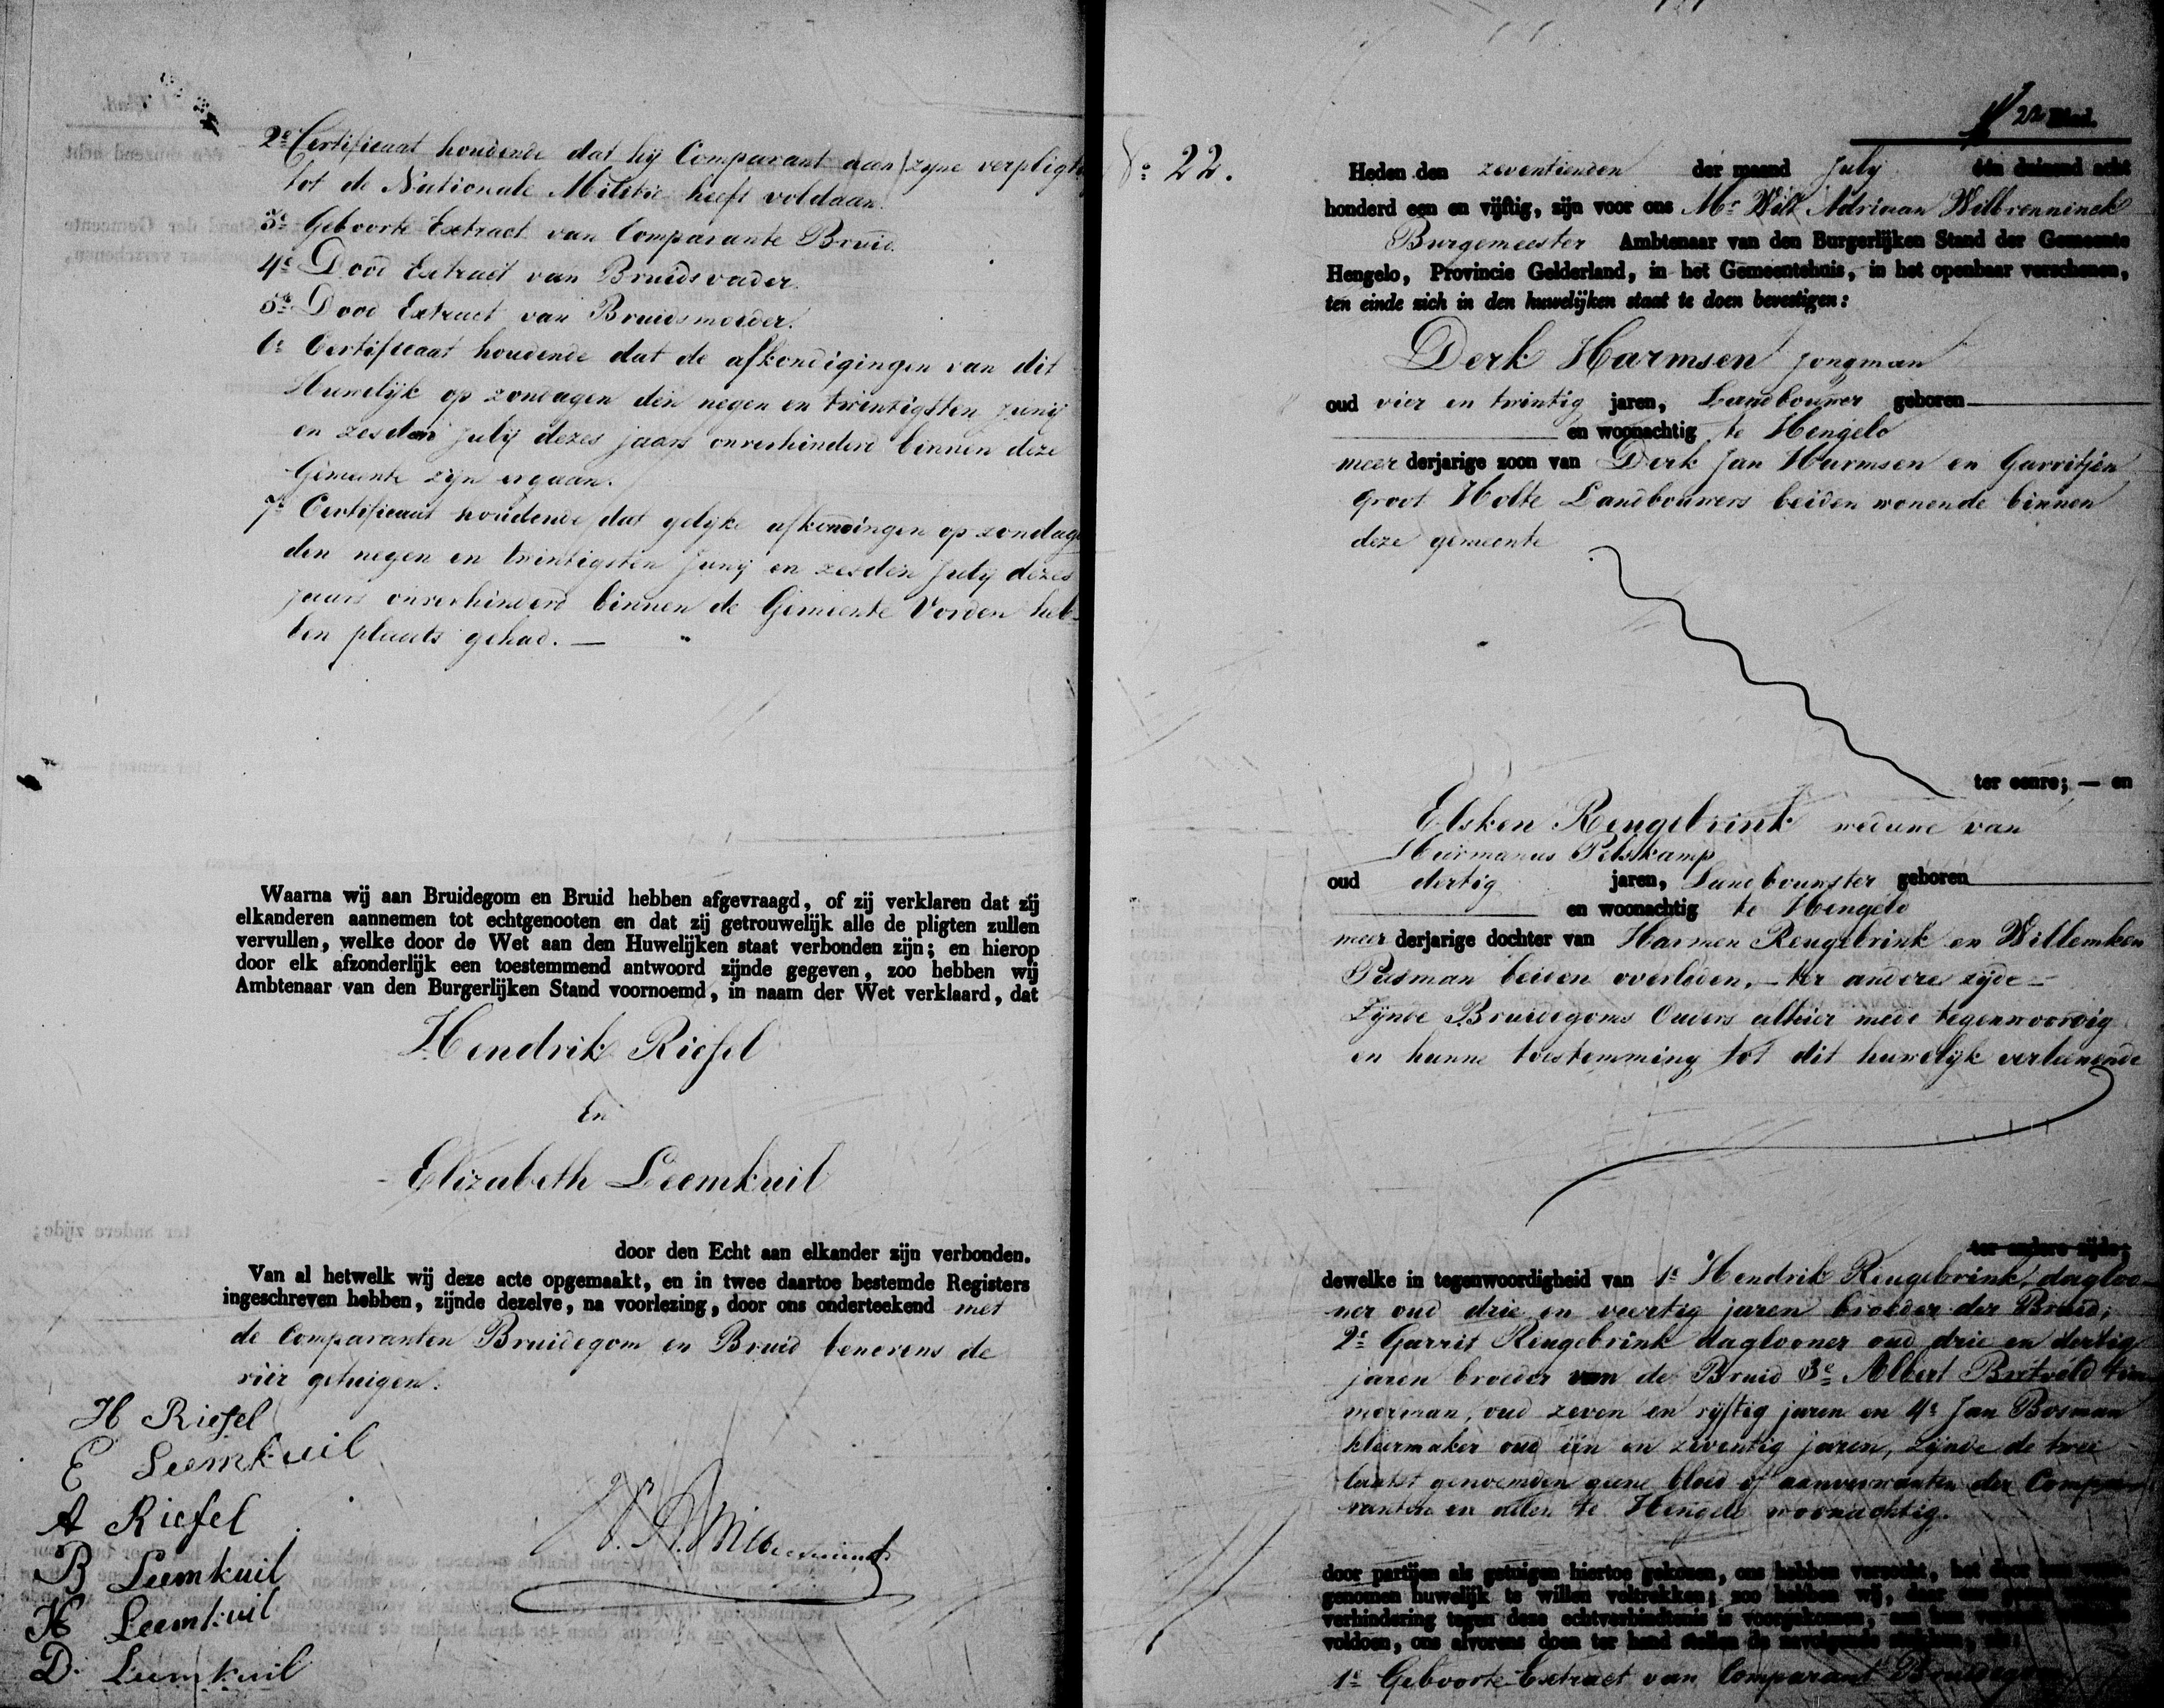 2e Certificaat houdende dat hij Comparant aan zijne verpligt
tot de Nationale Militie heeft voldaan.
3e Geboorte Extract van Comparante Bruid.
4e Dood Extract van Bruidsvader.
5e Dood Extract van Bruidsmoeder.
6e Certificaat houdende dat de afkondigingen van dit
Huwelijk op zondagen den negen en twintigsten Junij
en zesden Julij dezes jaars onverhinderd binnen deze
Gemeente zijn ergaan.
7e Certificaat houdende dat gelijke afkondingen op zondag
den negen en twintigsten Junij en zesden Julij dezes
jaars onverhinderd binnen de Gemeente Vorden heb-
ben plaats gehad. —
Waarna wij aan Bruidegom en Bruid hebben afgevraagd, of zij verklaren dat zij
elkanderen aannemen tot echtgenooten en dat zij getrouwelijk alle de pligten zullen
vervullen, welke door de Wet aan den Huwelijken staat verbonden zijn; en hierop
door elk afzonderlijk een toestemmend antwoord zijnde gegeven, zoo hebben wij
Ambtenaar van den Burgerlijken Stand voornoemd, in naam der Wet verklaard, dat
Hendrik Riefel
En
Elizabeth Leemkuil
door den Echt aan elkander zijn verbonden.
Van al hetwelk wij deze acte opgemaakt, en in twee daartoe bestemde Registers
ingeschreven hebben, zijnde dezelve, na voorlezing, door ons onderteekend met
de Comparanten Bruidegom en Bruid benevens de
vier getuigen.
H Riefel
E Leemkuil
A Riefel
B Leemkuil
H Leemkuil
D. Leemkuil
22 Blad.
No 22.
Heden den zeventienden der maand July één duizend acht
honderd een en vijftig, zijn voor ons Mr Wilt Adriaan Willbrenninck
Burgemeester Ambtenaar van den Burgerlijken Stand der Gemeente
Hengelo, Provincie Gelderland, in het Gemeentehuis, in het openbaar verschenen,
ten einde zich in den huwelijken staat te doen bevestigen:
Derk Harmsen jongman
oud vier en twintig jaren, Landbouwer geboren
en woonachtig te Hengelo
meer derjarige zoon van Derk Jan Harmsen en Garritjen
Groot Holte Landbouwers beiden wonende binnen
deze gemeente
ter eenre; — en
Elsken Reugebrink weduwe van
Harmanus Pelskamp
oud dertig jaren, Landbouwster geboren
en woonachtig te Hengelo
meer derjarige dochter van Harmen Reugebrink en Willemken
Pasman beiden overleden, — ter andere zijde —
Zijnde Bruidegoms Ouders alhier mede tegenwoordig
en hunne toestemming tot dit huwelijk verleenende
ter andere zijde;
dewelke in tegenwoordigheid van 1e Hendrik Reugebrink, dagloo-
ner oud drie en veertig jaren broeder der Bruid;
2e Garrit Reugebrink daglooner oud drie en dertig
jaren broeder van de Bruid 3e Albert Bretveld tim-
merman, oud zeven en vijftig jaren en 4e Jan Bosman
kleermaker oud één en zeventig jaren, zijnde de twee
laatst genoemden geene bloed of aanverwanten der Compa-
ranten en allen te Hengelo woonachtig.
door partijen als getuigen hiertoe gekozen, ons hebben verzocht, het door hen voor-
genomen huwelijk te willen voltrekken; zoo hebben wij, daar ons geene
verhindering tegen deze echtverbindtenis is voorgekomen, aan hun verzoek
voldoen, ons alvorens doen ter hand stellen de navolgende stukken, als:
1e Geboorte-Extract van Comparant Bruidegom